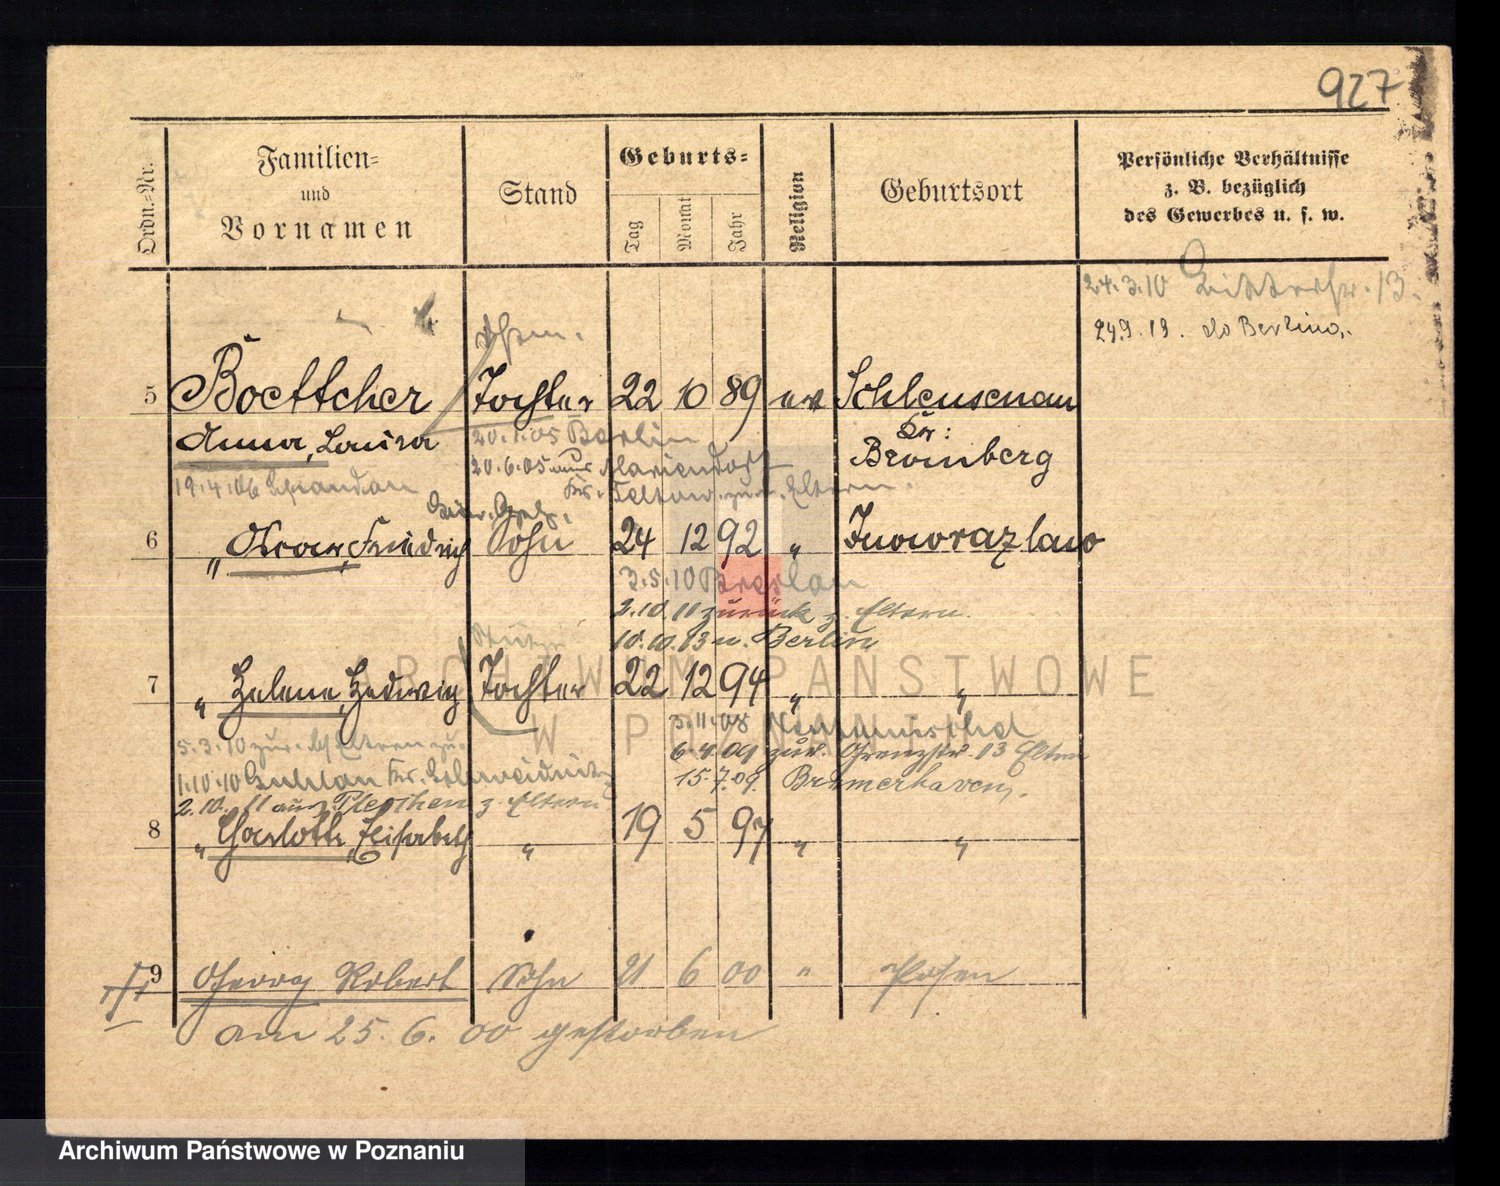 927
Ordn.-Nr.
Familien-
und
Vornamen
Stand
Geburts-
Tag
Monat
Jahr
Religion
Geburtsort
Persönliche Verhältnisse
z. B. bezüglich
des Gewerbes u. s. w.
24.3.10
24.9.19. Berlin
5 Boettcher Tochter 22 10 89 ev Schleusenau
Anna, Laura
Kr:
Bromberg
20.1.05 Berlin
20.6.05 Mariendorf
19.4.06 Spandau
Kr. Teltow Eltern.
6 " Oscar, Friedrich Sohn 24 12 92 " Inowrazlaw
3.5.10 Breslau
2.10.11 zurück z. Eltern.
10.10.13 n. Berlin
7 " Helene, Hedwig Tochter 22 12 94 " "
3.11.08
5.3.10 zur.
6.4.09 zur. Grenzstr. 13 Eltern
1.10.10 Kr. Schweidnitz
15.7.09 Bremerhaven.
2.10.11 aus Pleschen z. Eltern
8 " Charlotte, Elisabeth " 19 5 97 " "
9 Georg Robert Sohn 21 6 00 " Posen
am 25.6.00 gestorben
ARCHIWUM PAŃSTWOWE
W POZNANIU
Archiwum Państwowe w Poznaniu